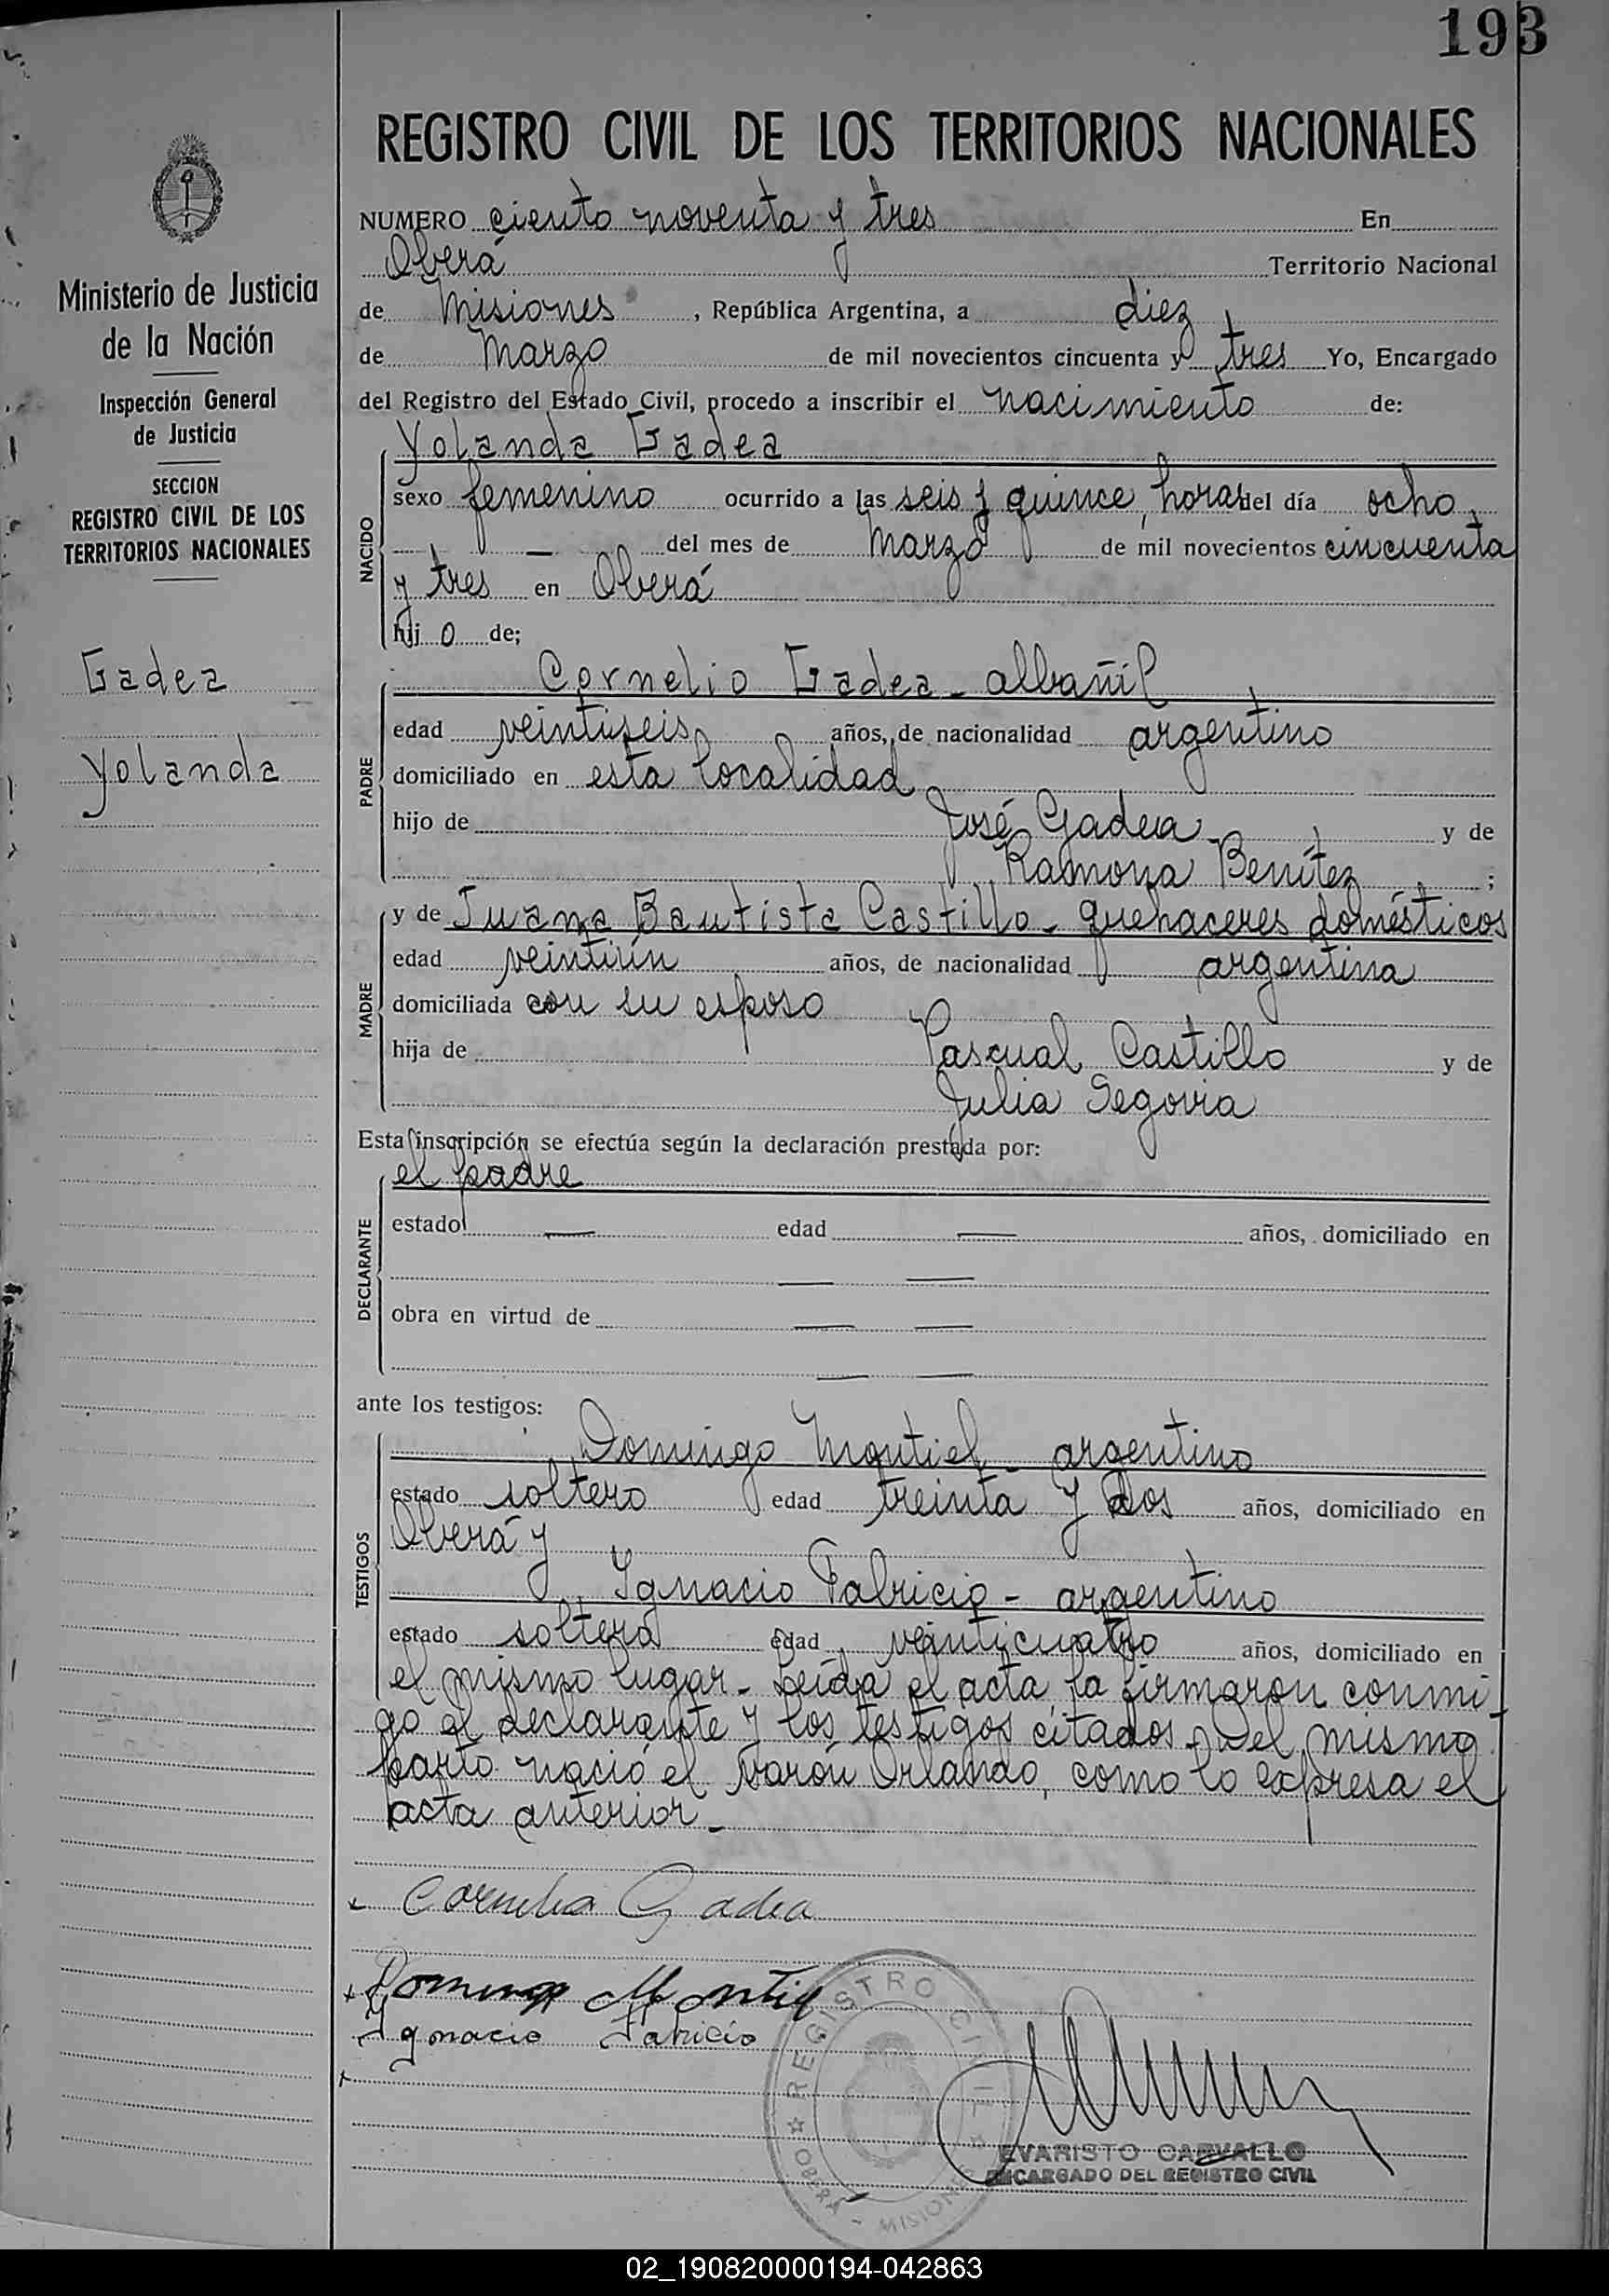 193
REGISTRO CIVIL DE LOS TERRITORIOS NACIONALES
Ministerio de Justicia
de la Nación
Inspección General
de Justicia
SECCION
REGISTRO CIVIL DE LOS
TERRITORIOS NACIONALES
Gadea
Yolanda
NUMERO ciento noventa y tres En
Oberá Territorio Nacional
de Misiones, República Argentina, a diez
de Marzo de mil novecientos cincuenta y tres Yo, Encargado
del Registro del Estado Civil, procedo a inscribir el nacimiento de:
NACIDO
Yolanda Gadea
sexo femenino ocurrido a las seis y quince, horas del día ocho
— del mes de Marzo de mil novecientos cincuenta
y tres en Oberá
hij o de;
PADRE
Cornelio Gadea - albañil
edad veintiseis años, de nacionalidad argentino
domiciliado en esta localidad
hijo de José Gadea y de
Ramona Benítez ;
MADRE
y de Juana Bautista Castillo - quehaceres domésticos
edad veintiún años, de nacionalidad argentina
domiciliada con su esposo
hija de Pascual Castillo y de
Julia Segovia
Esta inscripción se efectúa según la declaración prestada por:
DECLARANTE
el padre
estado — edad — años, domiciliado en
— —
obra en virtud de — —
— —
ante los testigos:
TESTIGOS
Domingo Montiel - argentino
estado soltero edad treinta y dos años, domiciliado en
Oberá y
Ignacio Fabricio - argentino
estado soltero edad veinticuatro años, domiciliado en
el mismo lugar - Leída el acta la firmaron conmi-
go el declarante y los testigos citados. Del mismo
parto nació el varón Orlando, como lo expresa el
acta anterior -
Cornelio Gadea
Domingo Montiel
Ignacio Fabricio
REGISTRO CIVIL
OBERA - MISIONES
EVARISTO CARVALLO
ENCARGADO DEL REGISTRO CIVIL
02_190820000194-042863